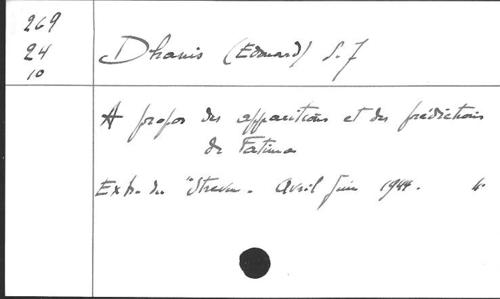 269
24
10
Dhanis (Edouard) S.J
A propos des apparitions et des prédictions
de Fatima
Extr. du "Streven. Avril Juin 1944.